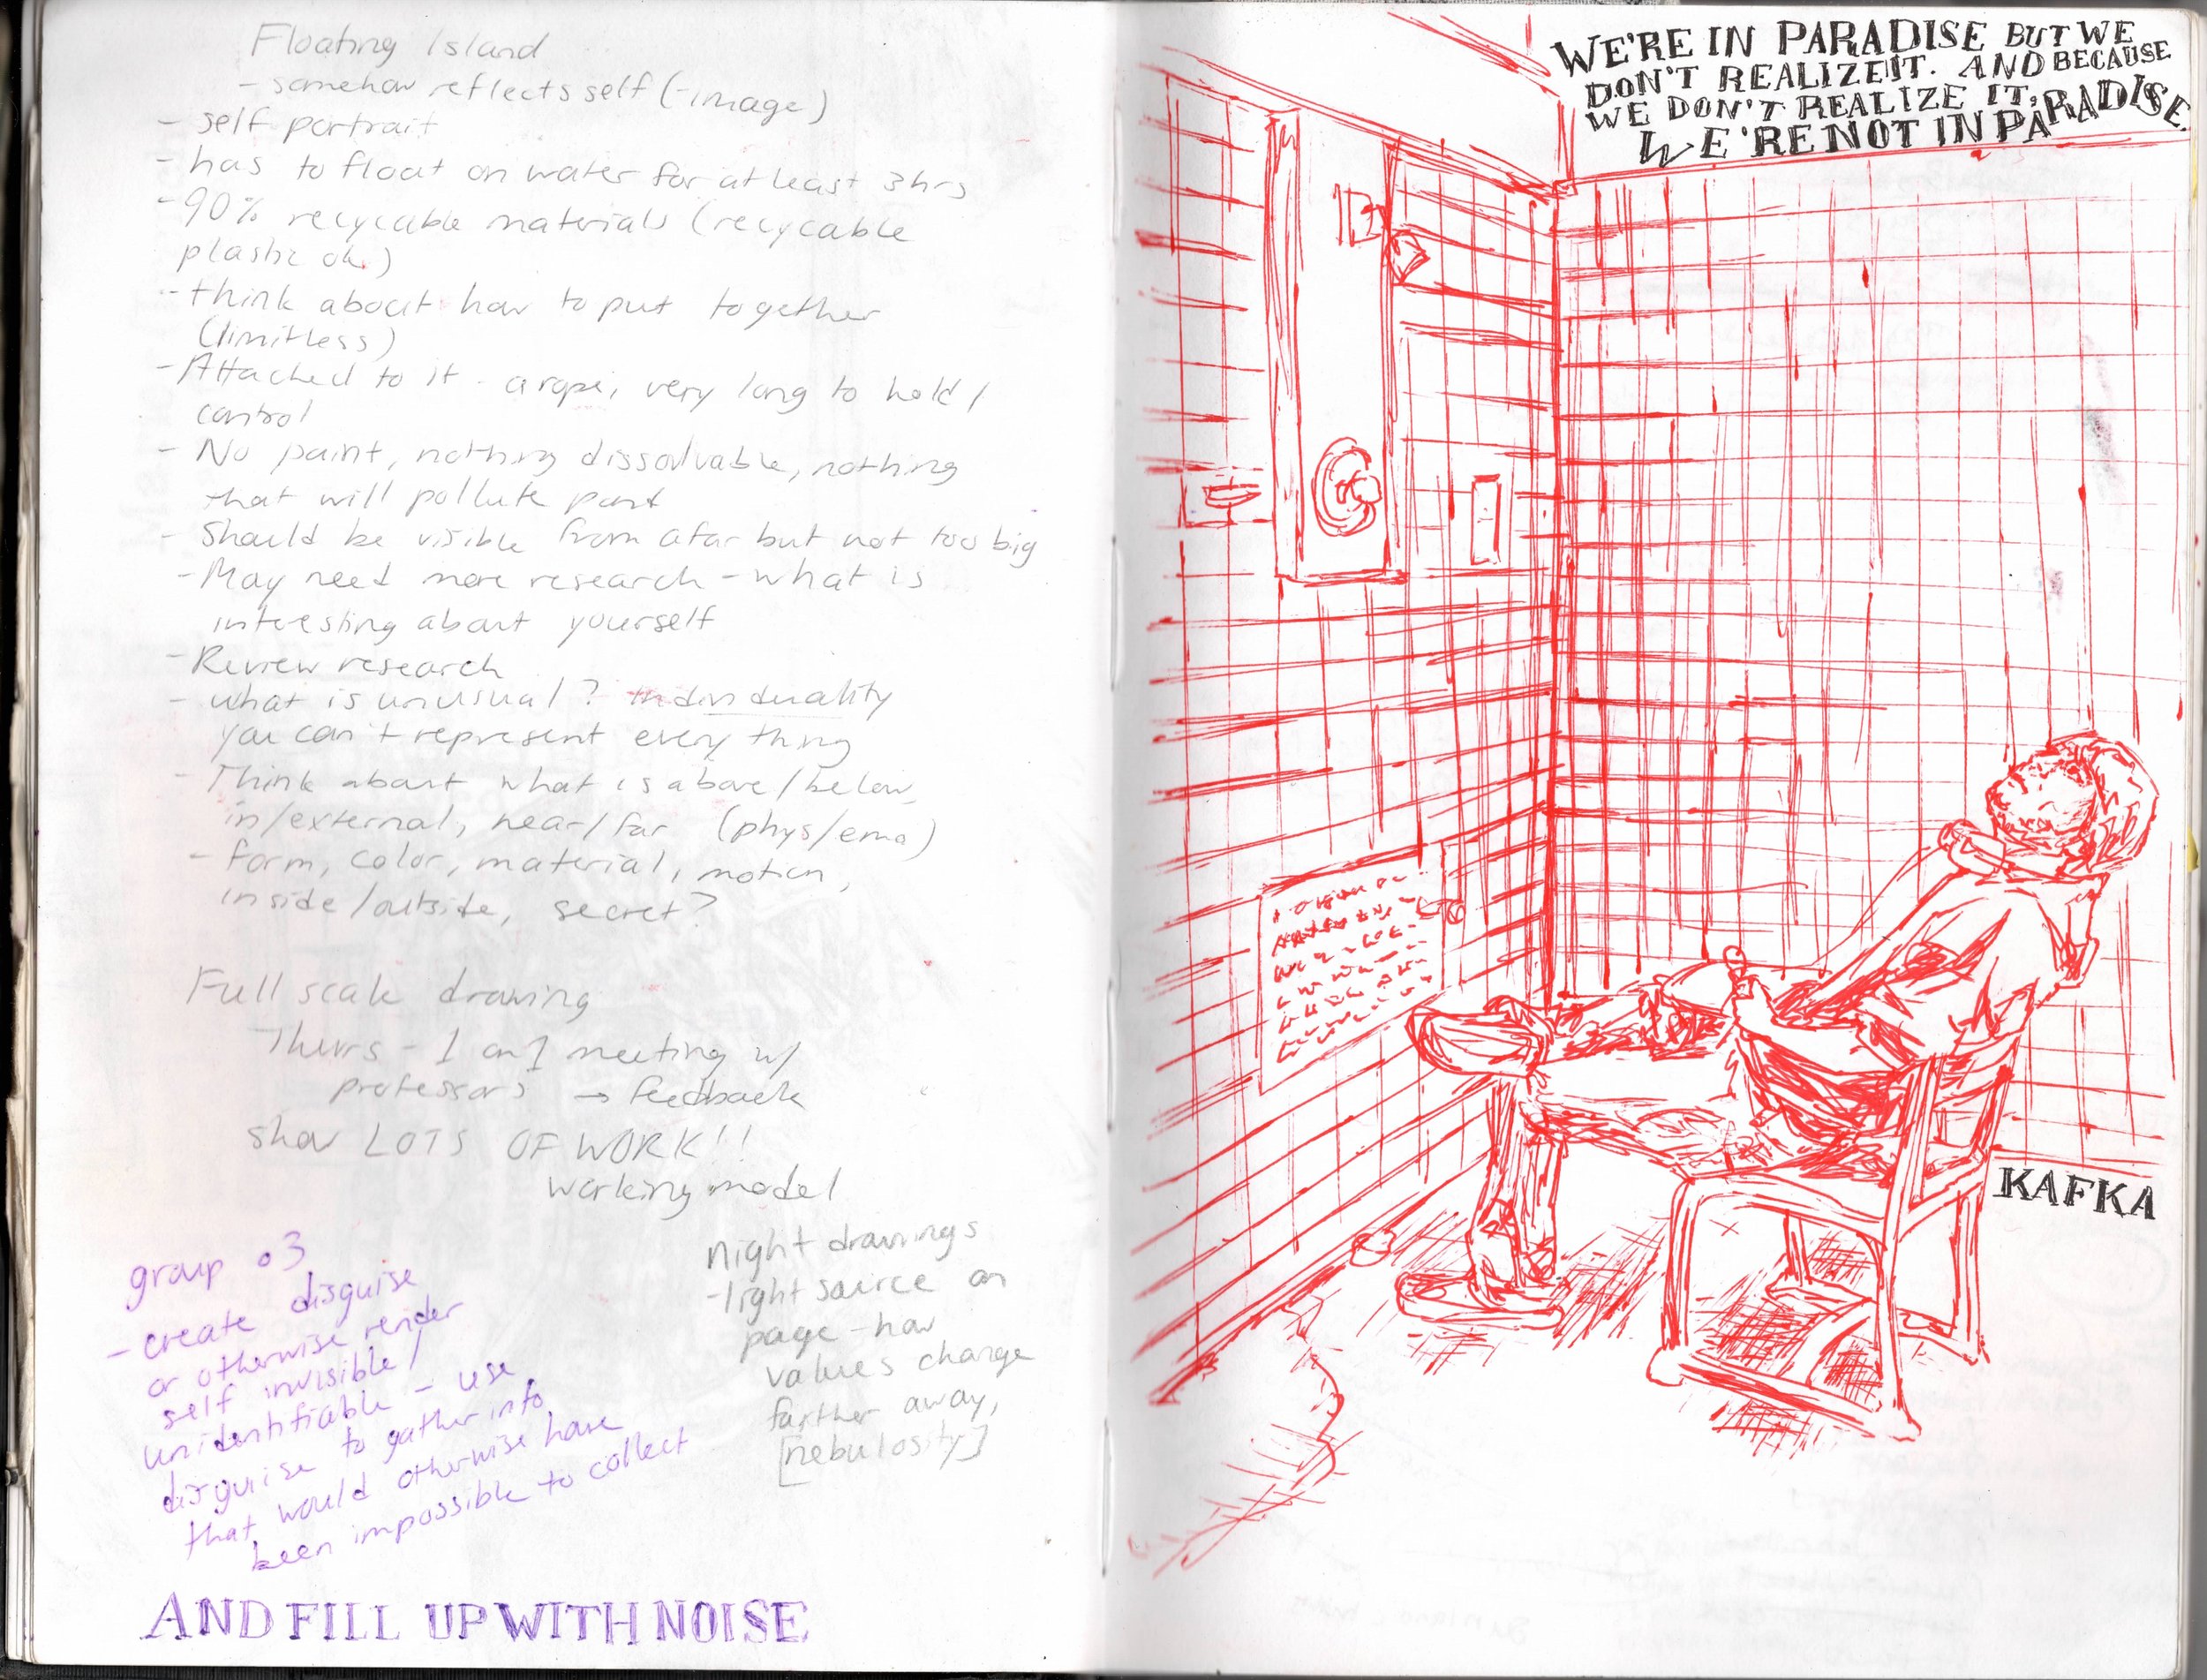 Floating Island
- somehow reflects self (-image)
- self portrait
- has to float on water for at least 3hrs
- 90% recycable materials (recycable
plastic ok.)
- think about how to put together
(limitless)
- Attached to it - a rope, very long to hold /
control
- No paint, nothing dissolvable, nothing
that will pollute pond
- should be visible from afar but not too big
- May need more research - what is
interesting about yourself
- Review research
- what is unusual? Individuality
you can't represent everything
- Think about what is above/below,
in/external, near/far (phys/emo)
- form, color, material, motion,
inside/outside, secret?
Full scale drawing
Thurs - 1 on 1 meeting w/
professors → feedback
show LOTS OF WORK!!
working model
group o3
- create disguise
or otherwise render
self invisible/
unidentifiable - use
disguise to gather info
that would otherwise have
been impossible to collect
night drawings
- light source on
page - how
values change
farther away,
[nebulosity]
AND FILL UP WITH NOISE
WE'RE IN PARADISE BUT WE
DON'T REALIZE IT. AND BECAUSE
WE DON'T REALIZE IT,
WE'RE NOT IN PARADISE.
KAFKA